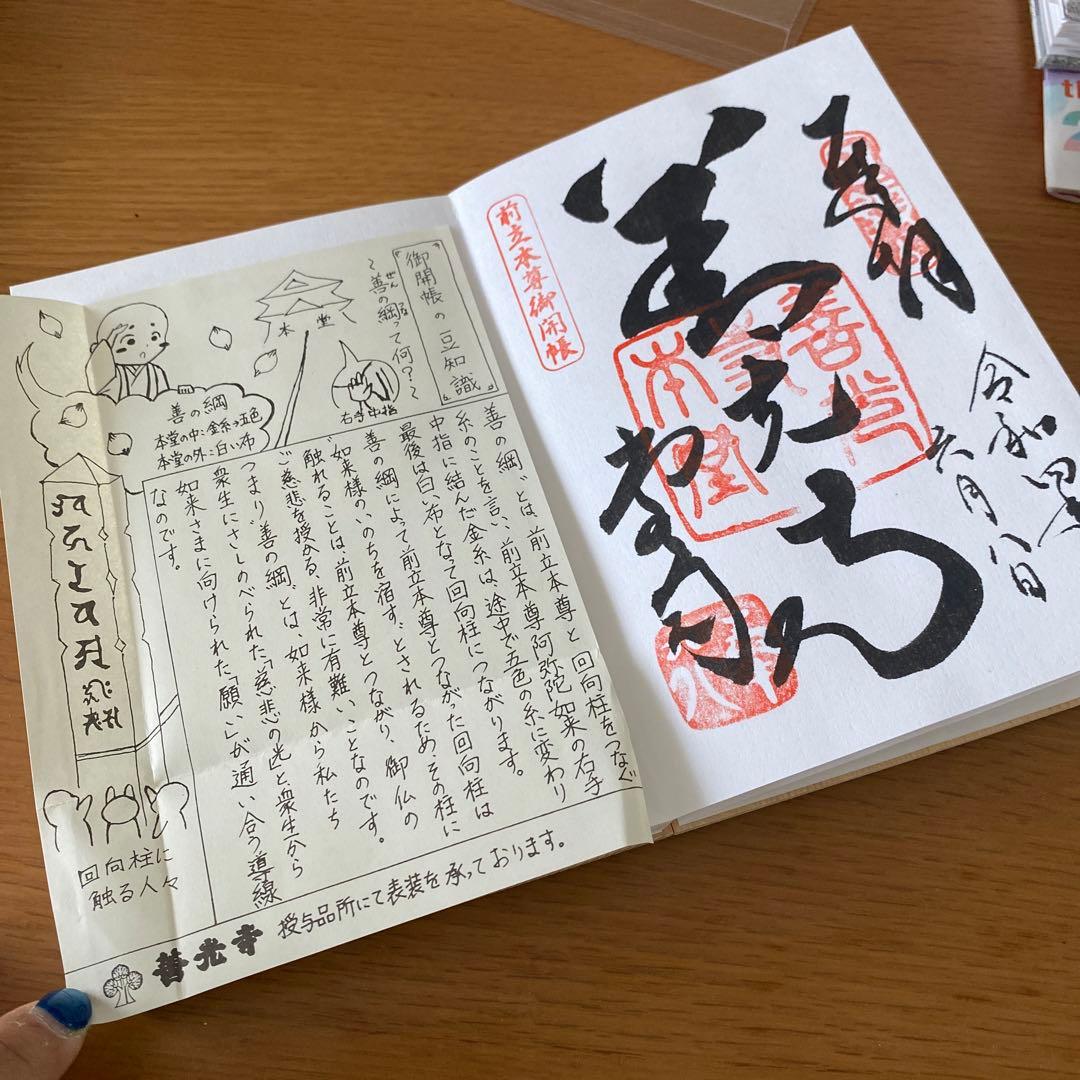 奉拝
令和四年
六月八日
善光寺
本堂
前立本尊御開帳
『御開帳の豆知識』
～善の綱って何？～
ぜん
本堂
右手中指
善の綱
本堂の中：金糸→五色
本堂の外：白い布
善の綱”とは、前立本尊と回向柱をつなぐ
糸のことを言い、前立本尊阿弥陀如来の右手
中指に結んだ金糸は、途中で五色の糸に変わり
最後は白い布となって回向柱につながります。
善の綱によって前立本尊とつながった回向柱は
“如来様のいのちを宿す”とされるため、その柱に
触れることは、前立本尊とつながり、御仏の
ご慈悲を授かる、非常に有難いことなのです。
つまり“善の綱”とは、如来様から私たち
衆生にさしのべられた「慈悲の光」と衆生から
如来さまに向けられた「願い」が通い合う導線
なのです。
回向柱に
触る人々
授与品所にて表装を承っております。
善光寺